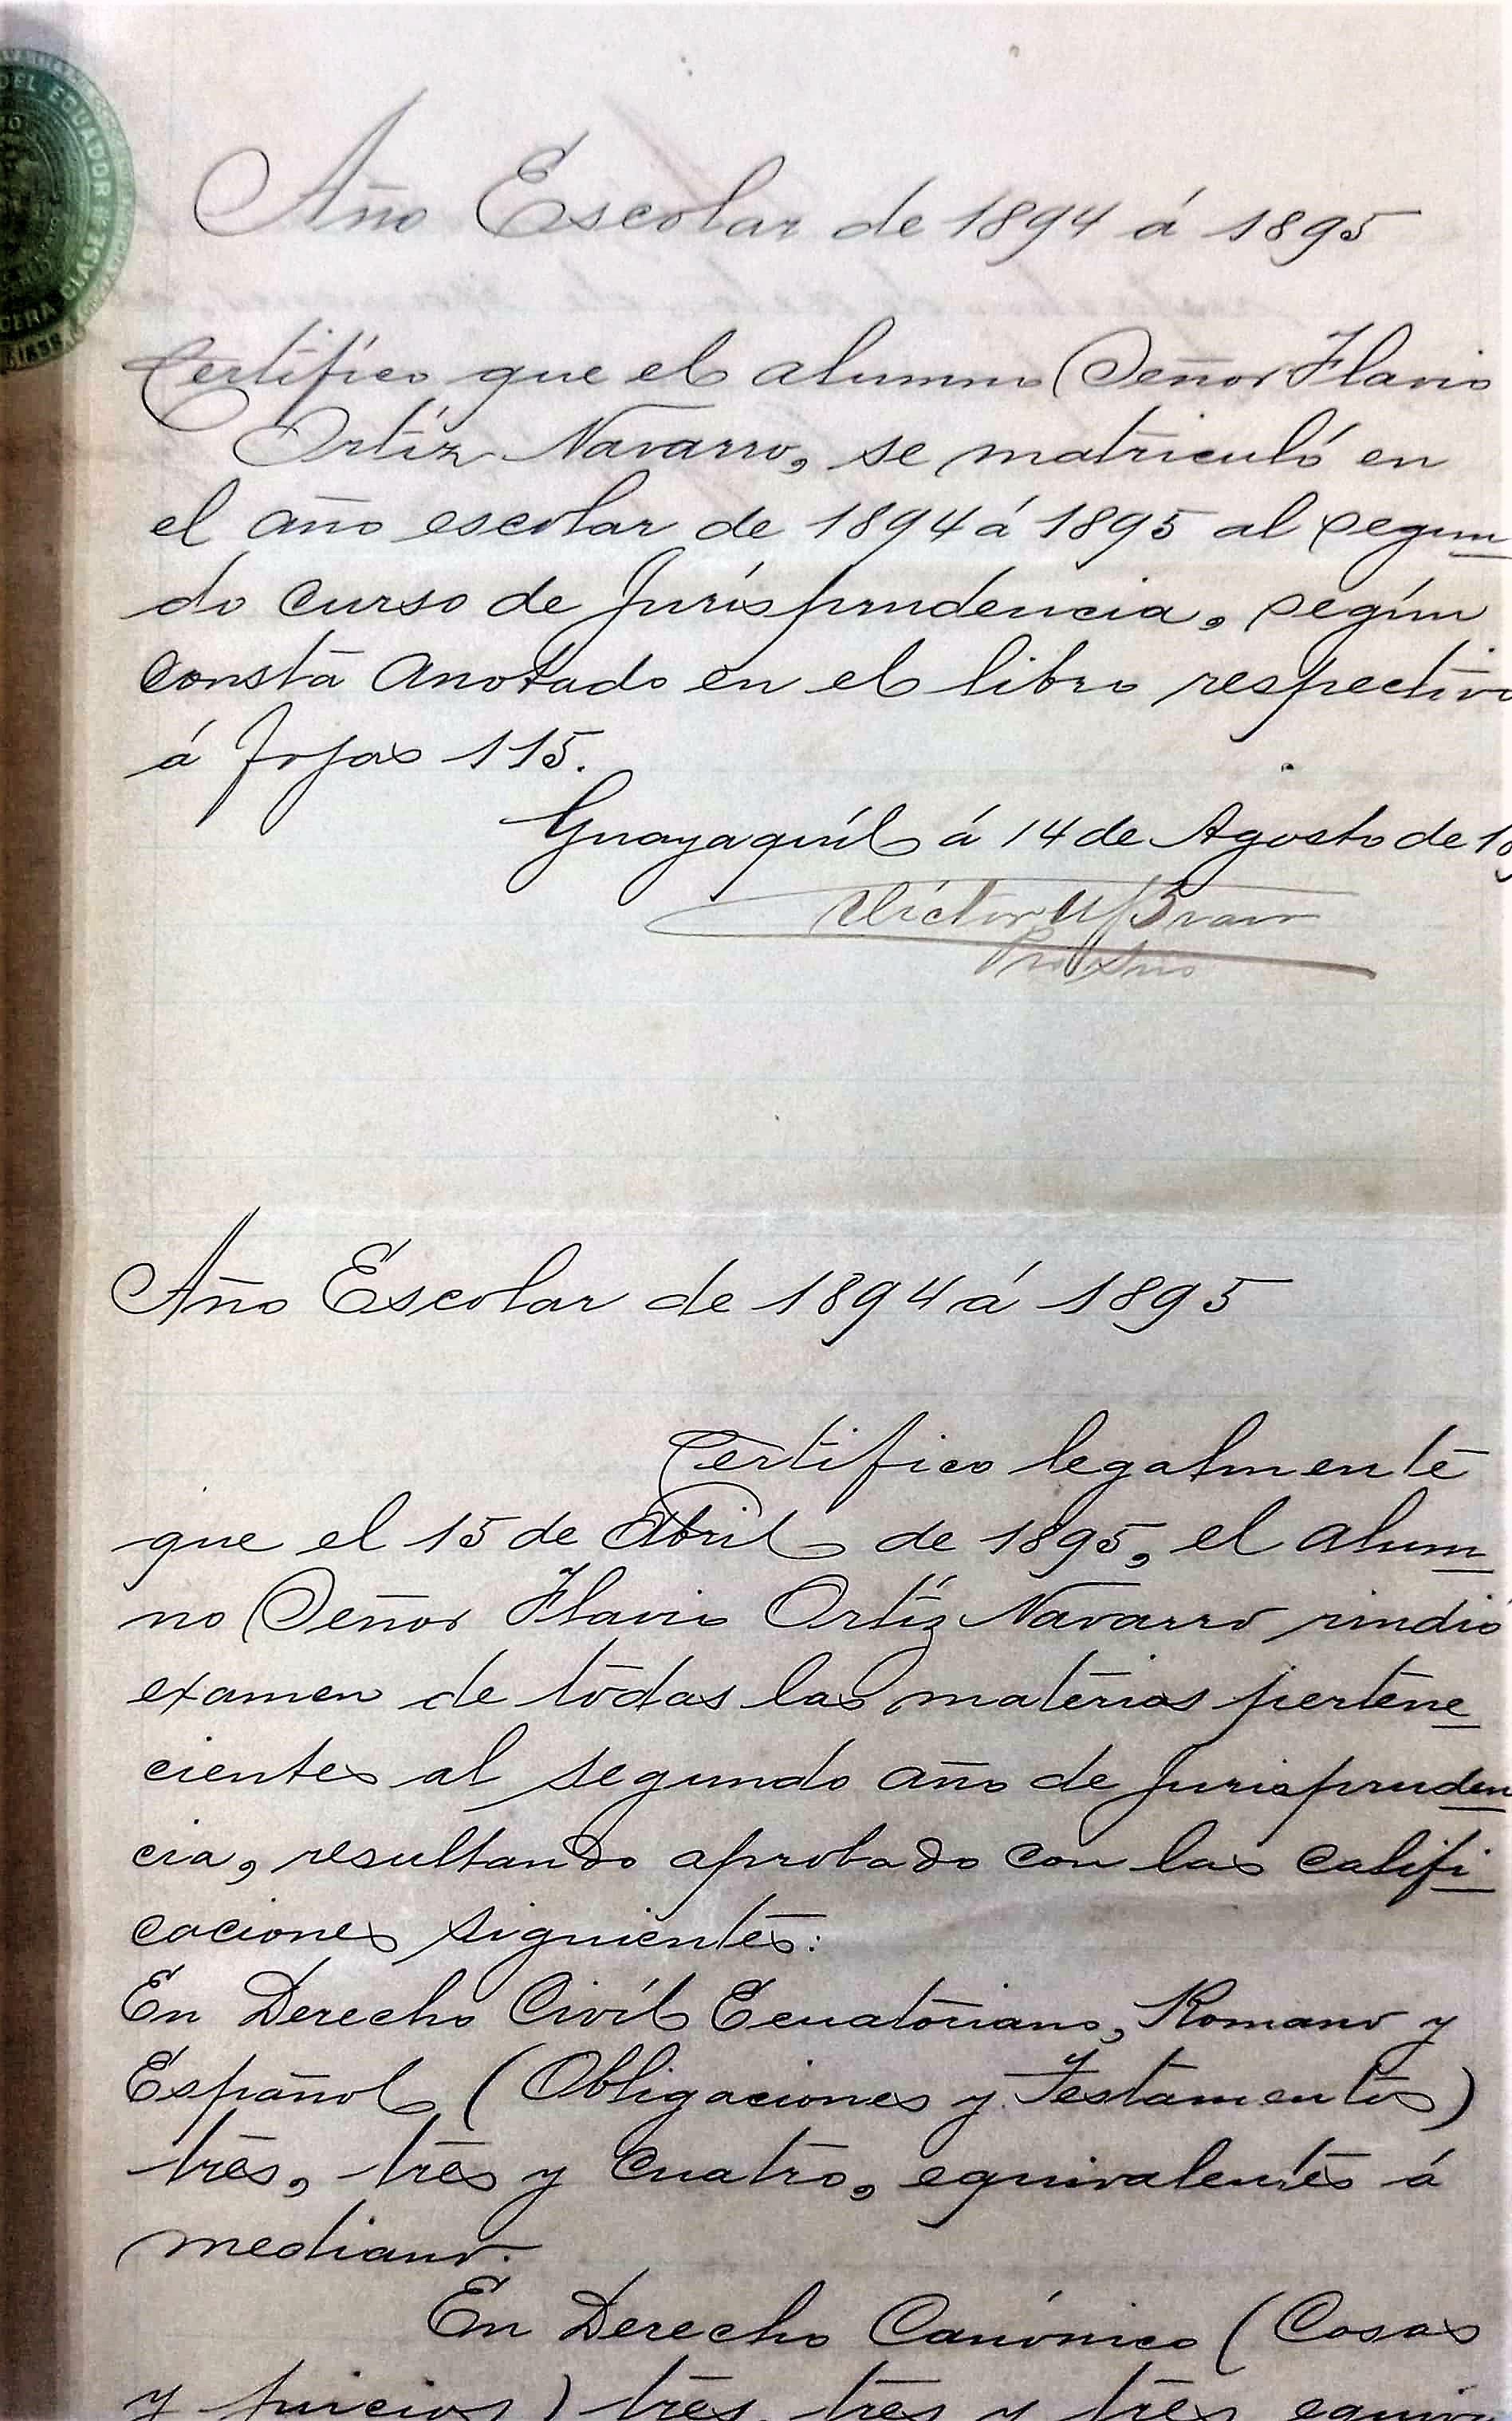 DEL ECUADOR
Año Escolar de 1894 á 1895
Certifico que el alumno Señor Flavio
Ortíz Navarro, se matriculó en
el año escolar de 1894 á 1895 al segun
do curso de Jurisprudencia, según
consta anotado en el libro respectivo
á fojas 115.
Guayaquil á 14 de Agosto de 18
Víctor M Bravo
Año Escolar de 1894 á 1895
Certifico legalmente
que el 15 de Abril de 1895, el alum
no Señor Flavio Ortíz Navarro rindió
examen de todas las materias pertene
cientes al segundo año de Jurispruden
cia, resultando aprobado con las califi
caciones siguientes:
En Derecho Civíl Ecuatoriano, Romano y
Español (Obligaciones y Testamentos)
tres, tres y cuatro, equivalentes á
mediano.
En Derecho Canónico (Cosas
y juicios) tres, tres y tres equiv